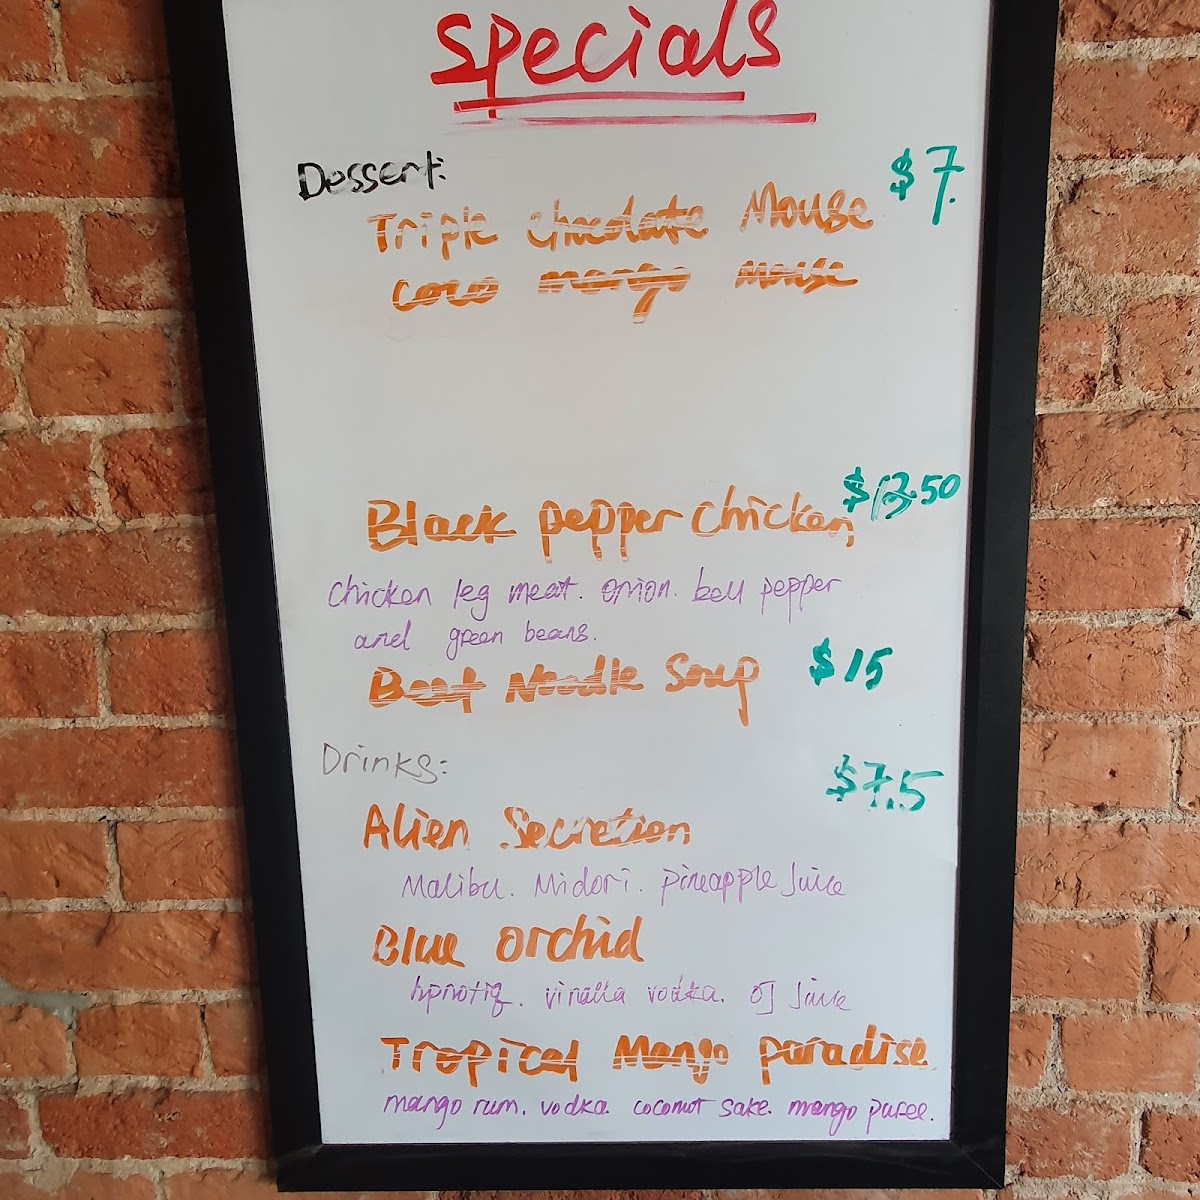 Specials
Dessert:
$7.
Triple chocolate Mouse
coco mango mouse
$13.50
Black pepper chicken,
chicken leg meat. onion. bell pepper
and green beans.
Beef Noodle Soup $15
Drinks:
$7.5
Alien Secretion
Malibu. Midori. pineapple Juice
Blue orchid
hpnotiq. vinalla vodka. OJ Juice
Tropical Mango paradise
mango rum. vodka. coconut sake. mango puree.